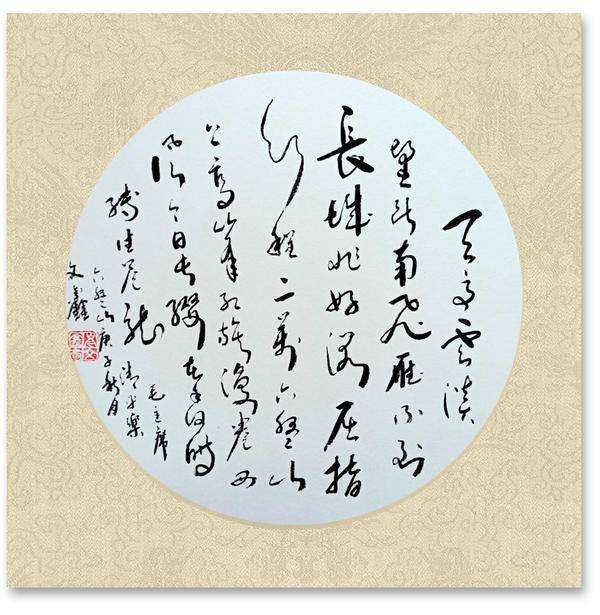 天高雲淡
望断南飛雁不到
長城非好漢屈指
行程二萬六盤山
上高峰紅旗漫卷西
风今日长缨在手何時
縛住蒼龍
毛主席
清平樂
六盤山庚子秋月
文